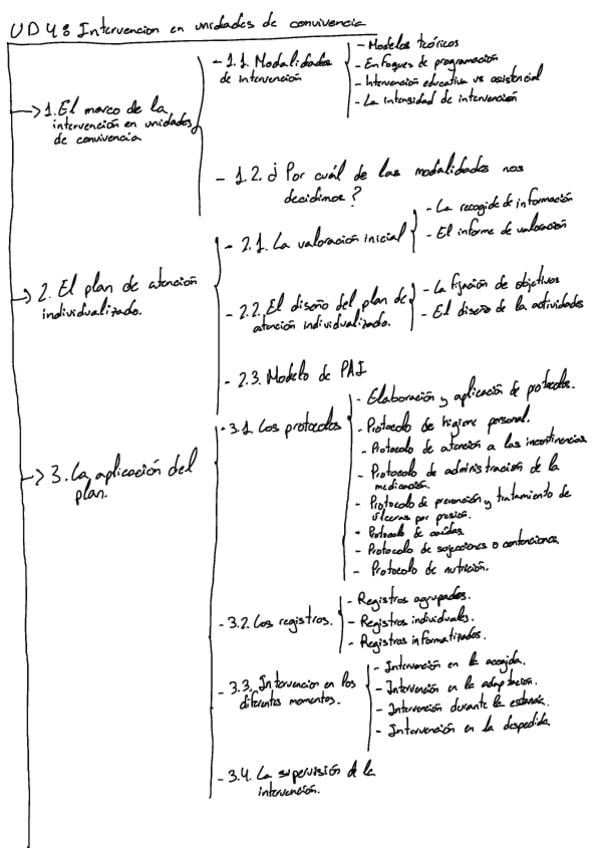 UD 4: Intervencion en unidades de convivencia
-> 1. El marco de la
intervención en unidades
de convivencia
- 1.1. Modalidades
de intervención
- Modelos teóricos
- Enfoques de programación
- Intervención educativa vs asistencial
- La intensidad de intervención
- 1.2. ¿Por cuál de las modalidades nos
decidimos?
-> 2. El plan de atención
individualizado.
- 2.1. La valoración inicial
- La recogida de información
- El informe de valoración
- 2.2. El diseño del plan de
atención individualizado.
- La fijación de objetivos
- El diseño de la actividades
- 2.3. Modelo de PAI
-> 3. La aplicación del
plan.
- 3.1. Los protocolos
- Elaboración y aplicación de protocolos.
- Protocolo de higiene personal.
- Protocolo de atención a las incontinencias
- Protocolo de administración de la
medicación.
- Protocolo de prevención y tratamiento de
úlceras por presión.
- Protocolo de caídas
- Protocolo de sujecciones o contenciones
- Protocolo de nutrición.
- 3.2. Los registros.
- Registros agrupados.
- Registros individuales.
- Registros informatizados.
- 3.3. Intervencion en los
diferentes momentos.
- Intervención en la acogida.
- Intervención en la adaptación.
- Intervención durante la estancia.
- Intervención en la despedida.
- 3.4. La supervisión de la
intervención.